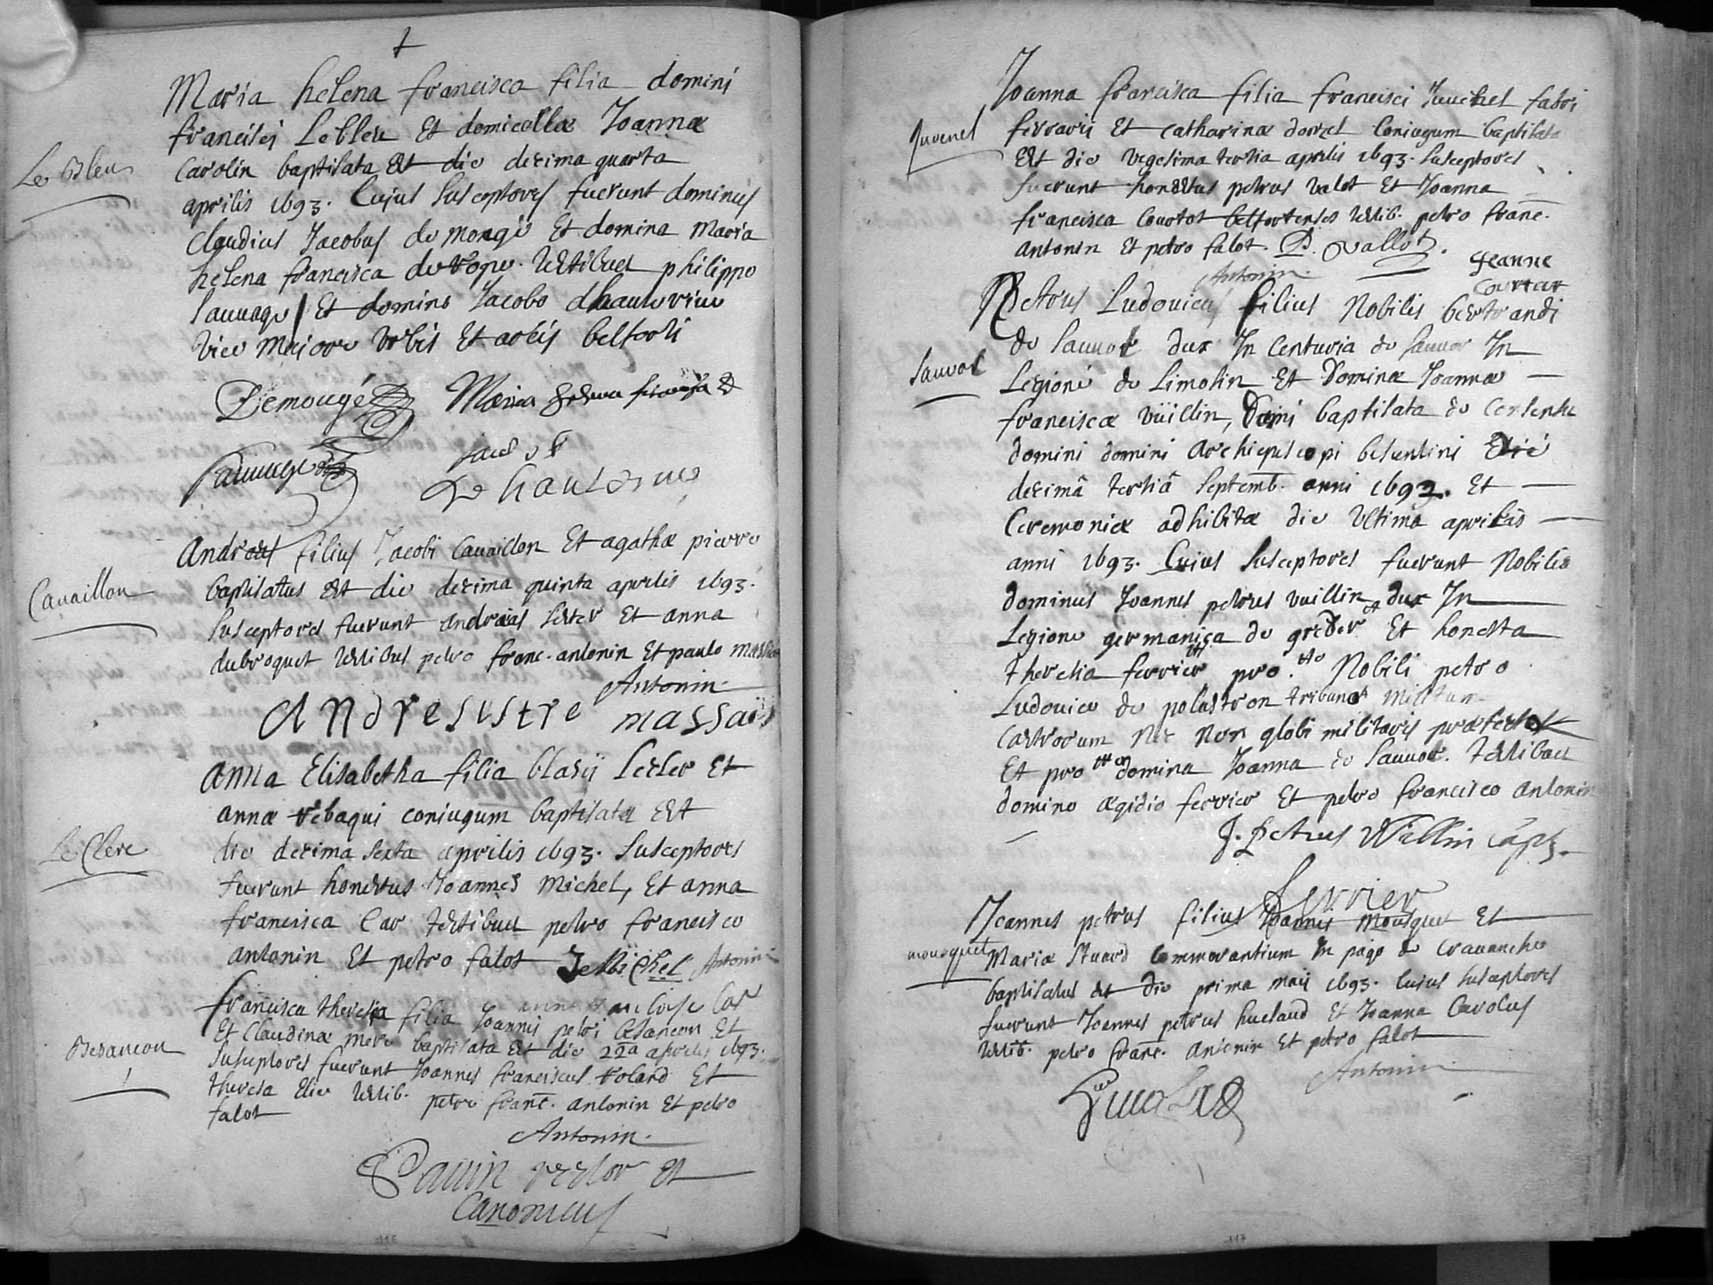 Maria helena francisca filia domini
Le Bleu
francisci Lebleu Et domicellæ Joannæ
Carolin baptisata Est die decima quarta
aprilis 1693. Cujus Susceptores fuerunt dominus
Claudius Jacobus de mongé Et domina Maria
helena francisca de testibus philippo
Sauuage Et domino Jacobo dhauterive
vice Majore Urbis Et arcis belforti
Demougé Maria helena
Sauuage
De hauterive
Andreas filius Jacobi Cauaillon Et agathæ pierre
Cauaillon
baptisatus Est die decima quinta aprilis 1693.
Susceptores fuerunt andreas Et anna
dubroquet testibus petro franc. antonin Et paulo
Antonin
Andre sustre massai
anna Elisabetha filia blasij Lecler Et
annæ rebaqui coniugum baptisata Est
Le Clerc
die decima sexta aprilis 1693. Susceptores
fuerunt honestus Joannes Michel, Et anna
francisca Car testibus petro francisco
antonin Et petro falot Je Michel Antonin
francisca theresia filia Joannis petri besancon Et
Et Claudinæ mere baptisata Est die 22a aprilis 1693.
Besancon
Susceptores fuerunt Joannes franciscus Roland Et
theresa Elie testib. petro franc. antonin Et petro
falot
Antonin.
rector Et
Canonicus
Joanna francisca filia francisci Juuenel fabri
Juuenel
ferrarii Et catharinæ dorel Coniugum baptisata
Est die vegesima tertia aprilis 1693. Susceptores
fuerunt honestus petrus valot Et Joanna
francisca Courtot belfortenses testib. petro franc.
antonin Et petro falot. P. vallot.
Jeanne
Courtot
Antonin
Petrus Ludovicus filius Nobilis bertrandi
de Sauuol dux In Centuria de Sauuol In
Sauuol
Legione de Limosin Et Dominæ Joannæ
franciscæ vüillin, Domi baptisata de
domini domini Archiepiscopi bisuntini die
decimâ tertiâ Septemb. anni 1692. Et
Ceremoniæ adhibitæ die Ultima aprilis
anni 1693. Cuius Susceptores fuerunt Nobilis
dominus Joannes petrus vuillin dux In
Legione germanica de greder Et honesta
theresia ferrier pro Nobili petro
Ludovico de polastron tribuno militum
Castrorum nec non globi militaris præfecto
Et pro domina Joanna de Sauuol. testibus
domino ægidio ferrier Et petro francisco antonin
J. Petrus Willin
ferrier
Joannes petrus filius Joannis Mousquet Et
mousquet
Mariæ Stuard Commorantium In pago de Crauanche
baptisatus Est die prima maij 1693. Cuius Susceptores
fuerunt Joannes petrus huelard Et Joanna Carolus
testib. petro franc. antonin Et petro falot
Antonin